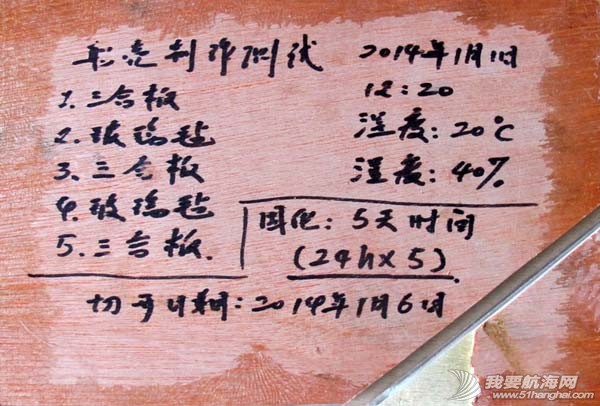 船壳制作测试 2014年1月1日
1.三合板 12:20
2.玻璃毡 温度:20℃
3.三合板 湿度:40%
4.玻璃毡
5.三合板.
固化:5天时间
(24h×5)
切开日期:2014年1月6日
我要航海网
www.51hanghai.com